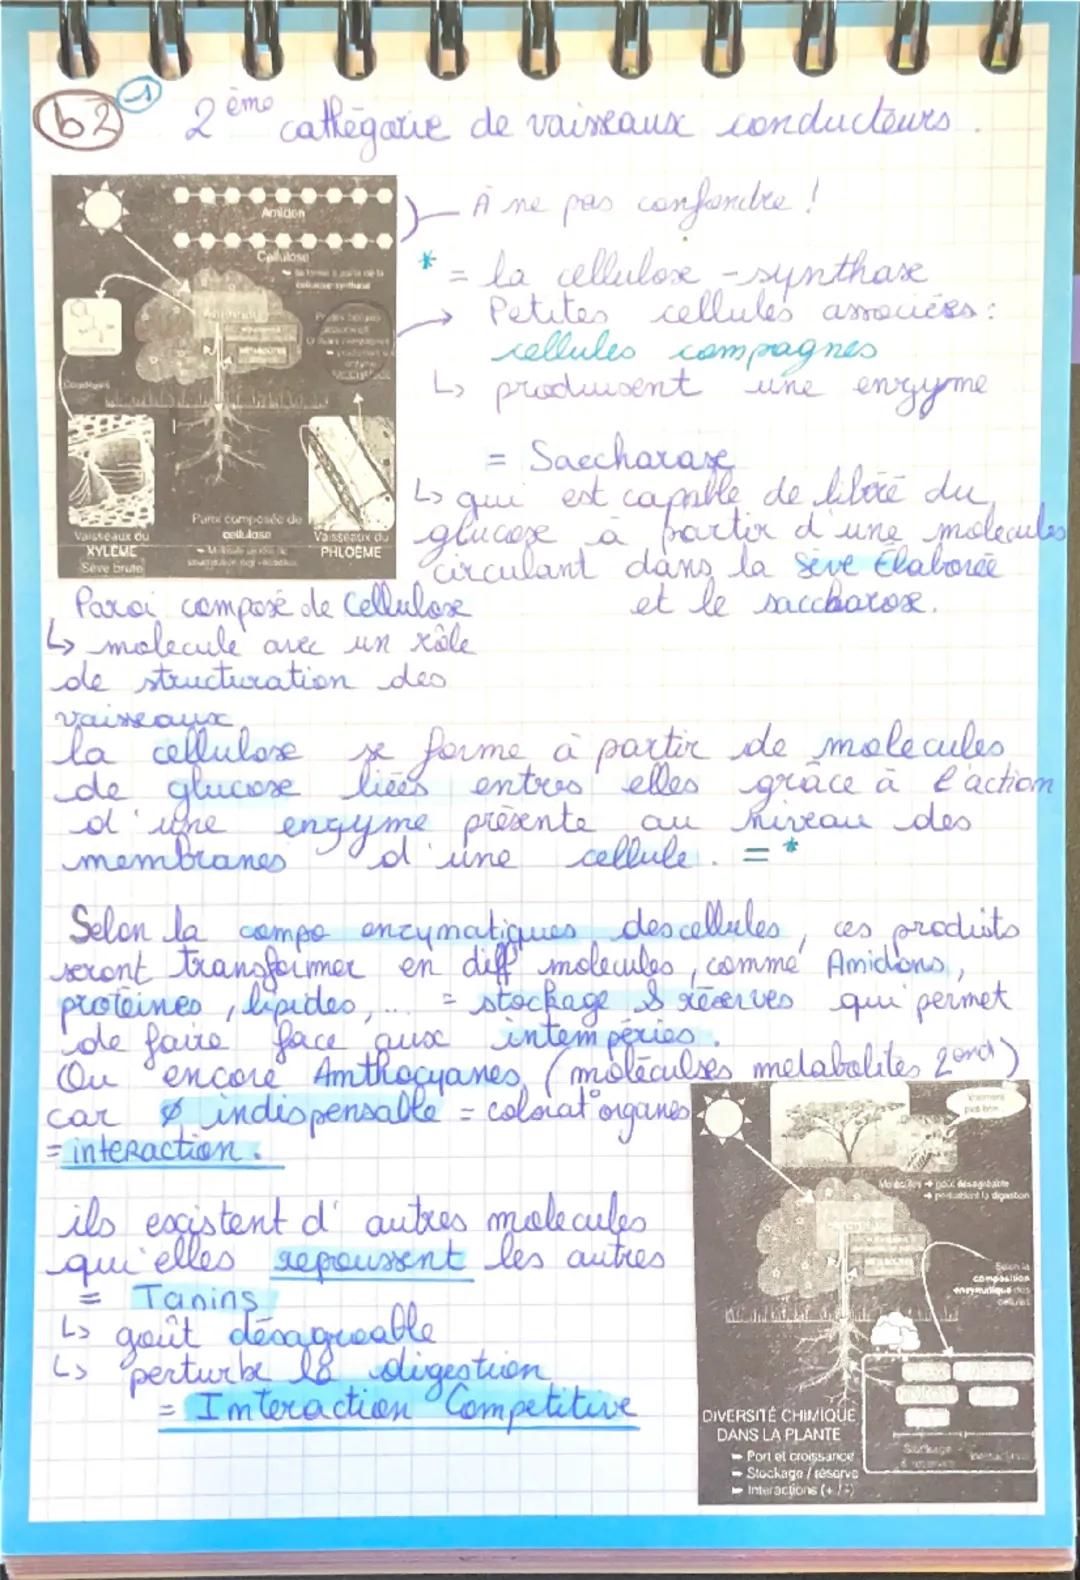 b2 1
2ème cathégorie de vaisseaux conducteurs.
Amidon
Cellulose
À ne pas confondre !
* = la cellulose-synthase
Petites cellules associées :
cellules compagnes
↳ produisent une enzyme
= Saccharase
↳ qui est capable de libéré du
glucose à partir d'une molécules
circulant dans la sève Élaborée
et le saccharose.
Paroi composée de
cellulose
Vaisseaux du
XYLÈME
Sève brute
Vaisseaux du
PHLOÈME
Paroi composé de Cellulose
↳ molecule avec un rôle
de structuration des
vaisseaux
la cellulose se forme à partir de molecules
de glucose liées entres elles grâce à l'action
d'une enzyme présente au niveau des
membranes d'une cellule. = *
Selon la compo enzymatiques des cellules, ces produits
seront transformer en diff molecules, comme Amidons,
protéines, lipides,... = stockage & réserves qui permet
de faire face aux intempéries.
Ou encore Anthocyanes (moléculses metabolites 2ond)
car ∅ indispensable = colorat° organes
= interaction.
ils existent d'autres molecules
qui elles repoussent les autres
= Tanins
↳ goût désagreable
↳ perturbe la digestion
= Interaction Compétitive
Molécules → goût désagréable
→ perturbent la digestion
Selon la
composition
enzymatique des
cellules
DIVERSITÉ CHIMIQUE
DANS LA PLANTE
Port et croissance
Stockage / réserve
Interactions (+ / -)